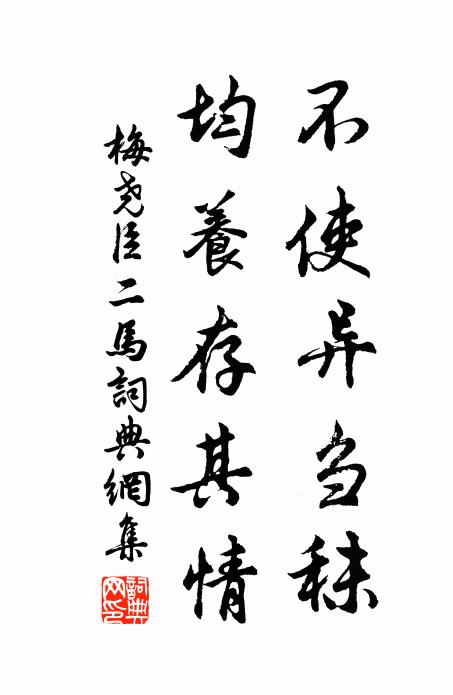 不使异刍秣
均養存其情
梅尧臣二馬詞典網集
詞典網印